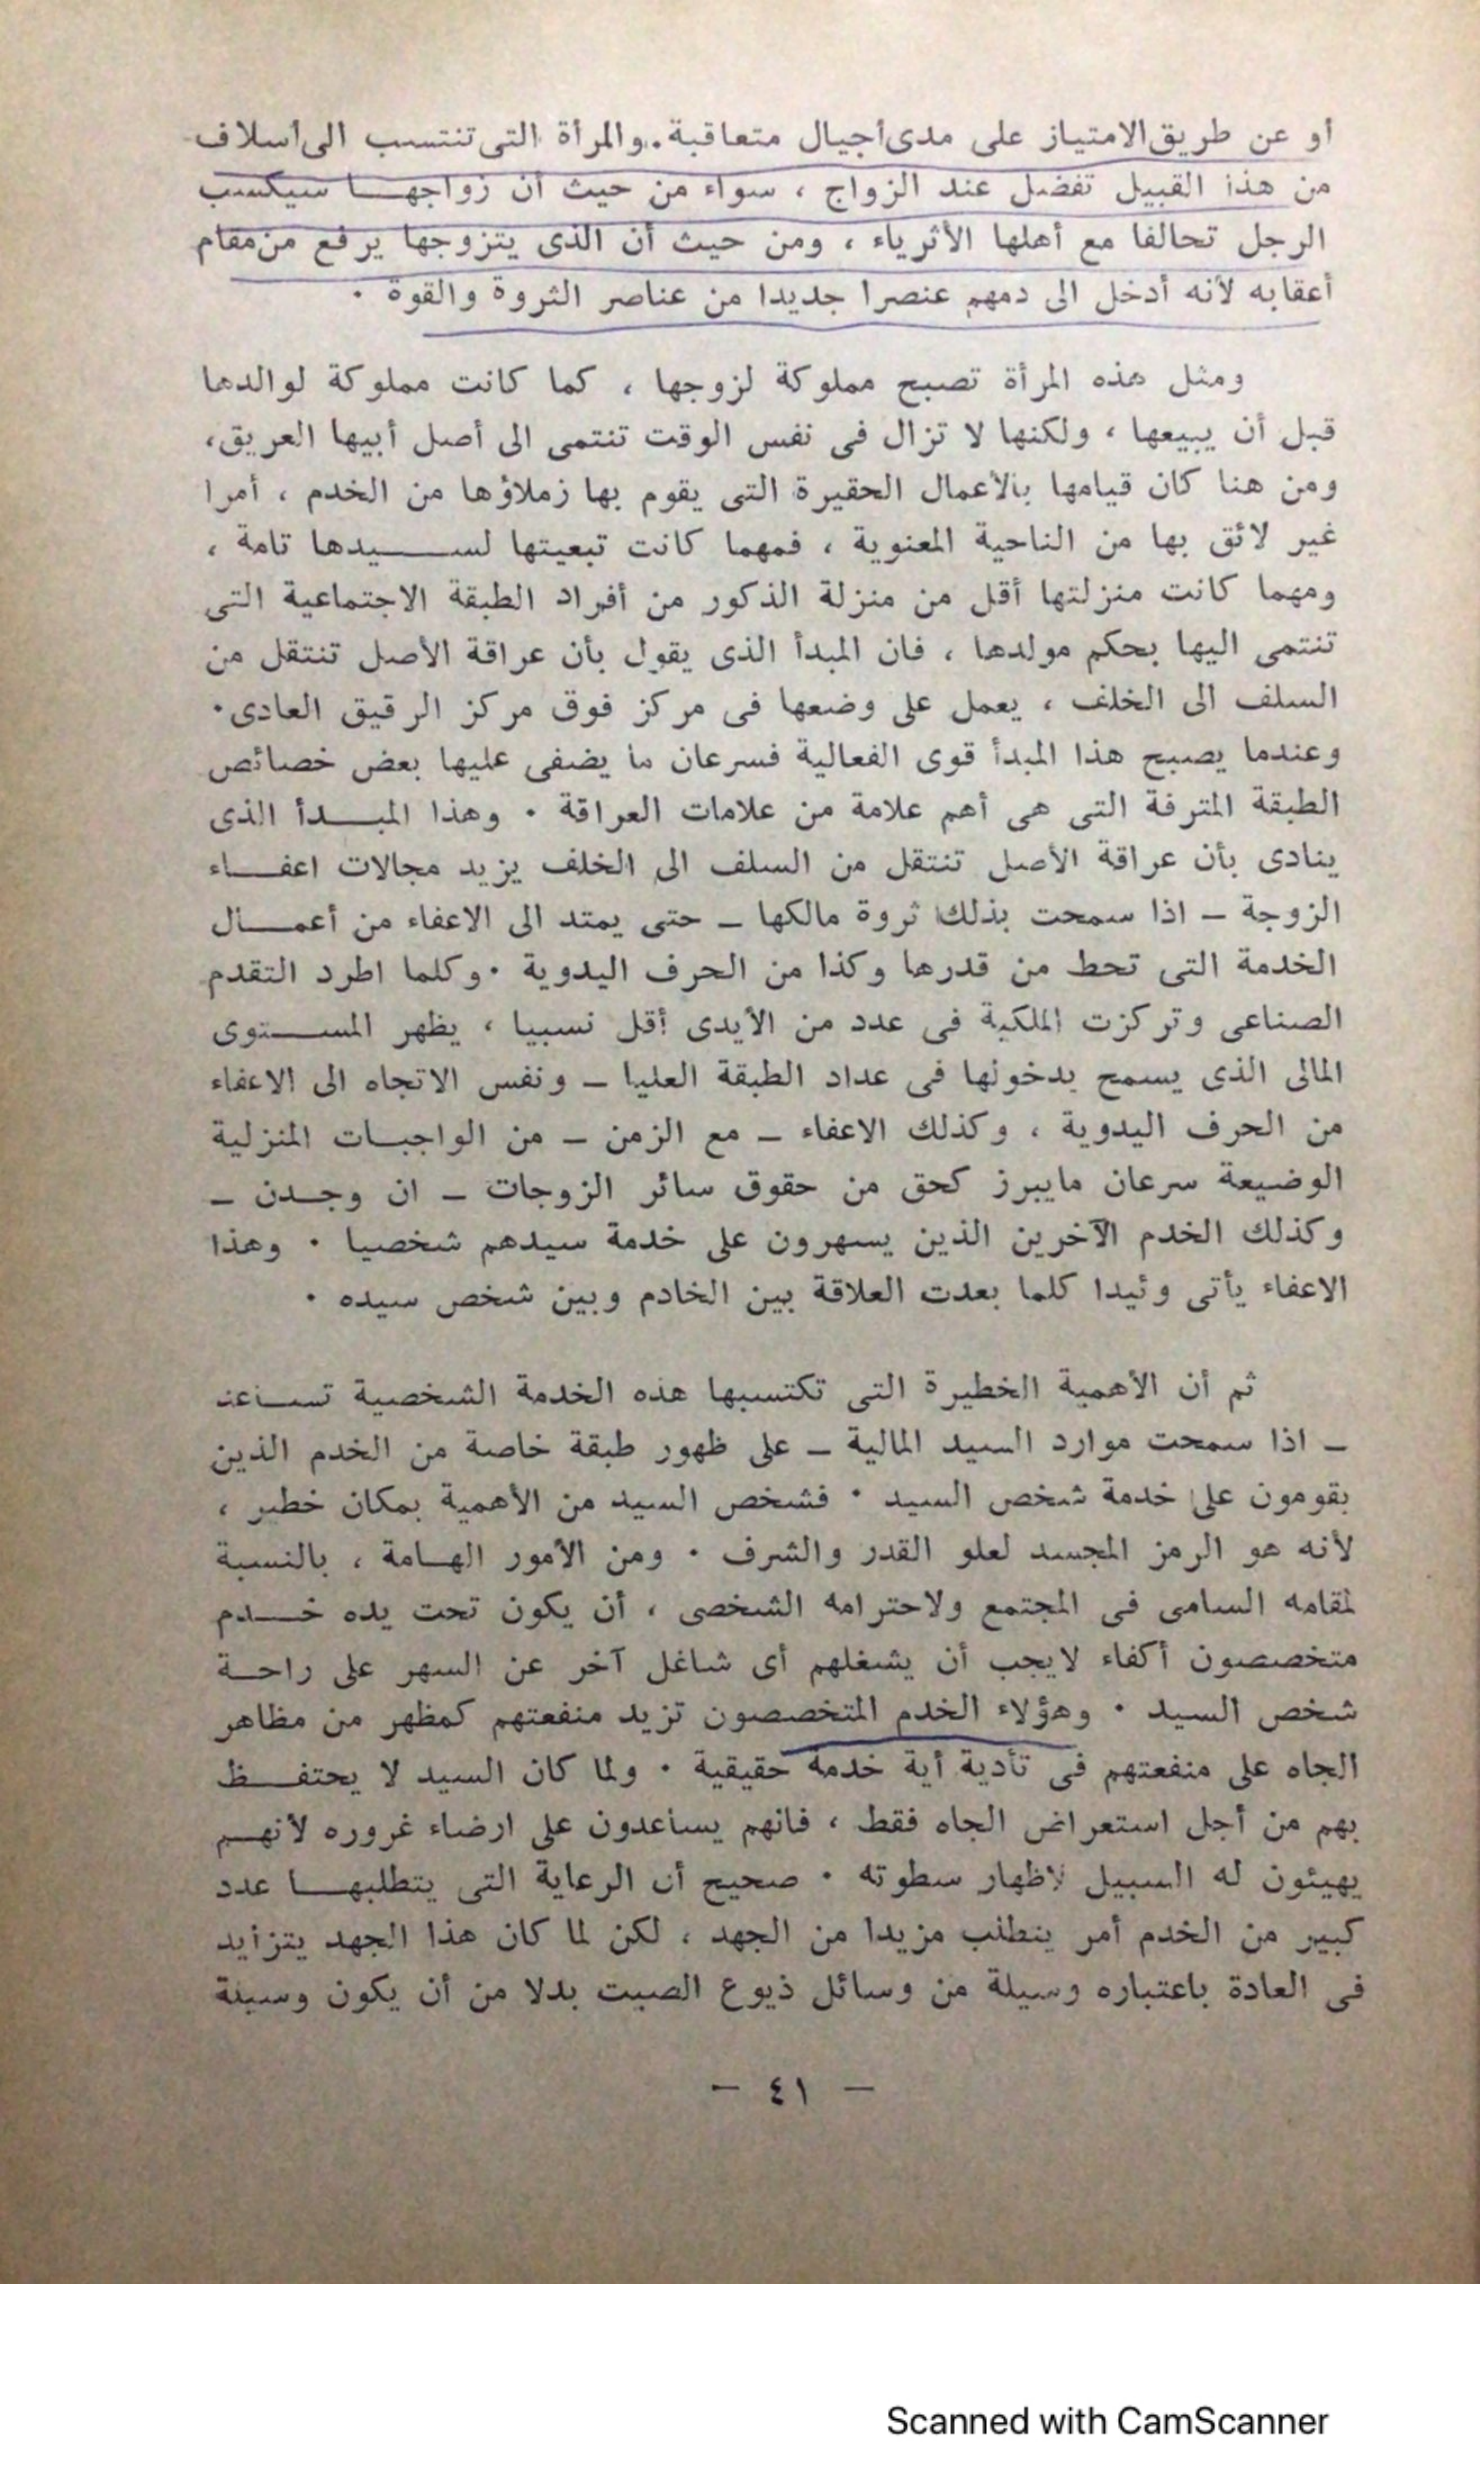 أو عن طريق الامتياز على مدى أجيال متعاقبة . والمرأة التى تنتسب الى أسلاف
من هذا القبيل تفضل عند الزواج ، سواء من حيث أن زواجهـــا سيكسب
الرجل تحالفا مع أهلها الأثرياء ، ومن حيث أن الذى يتزوجها يرفع من مقام
أعقابه لأنه أدخل الى دمهم عنصرا جديدا من عناصر الثروة والقوة ٠
ومثل هذه المرأة تصبح مملوكة لزوجها ، كما كانت مملوكة لوالدها
قبل أن يبيعها ، ولكنها لا تزال فى نفس الوقت تنتمى الى أصل أبيها العريق،
ومن هنا كان قيامها بالأعمال الحقيرة التى يقوم بها زملاؤها من الخدم ، أمرا
غير لائق بها من الناحية المعنوية ، فمهما كانت تبعيتها لســـــيدها تامة ،
ومهما كانت منزلتها أقل من منزلة الذكور من أفراد الطبقة الاجتماعية التى
تنتمى اليها بحكم مولدها ، فان المبدأ الذى يقول بأن عراقة الأصل تنتقل من
السلف الى الخلف ، يعمل على وضعها فى مركز فوق مركز الرقيق العادى٠
وعندما يصبح هذا المبدأ قوى الفعالية فسرعان ما يضفى عليها بعض خصائص
الطبقة المترفة التى هى أهم علامة من علامات العراقة ٠ وهذا المبـــدأ الذى
ينادى بأن عراقة الأصل تنتقل من السلف الى الخلف يزيد مجالات اعفـــاء
الزوجة ــ اذا سمحت بذلك ثروة مالكها ــ حتى يمتد الى الاعفاء من أعمـــال
الخدمة التى تحط من قدرها وكذا من الحرف اليدوية ٠وكلما اطرد التقدم
الصناعى وتركزت الملكية فى عدد من الأيدى أقل نسبيا ، يظهر المســـتوى
المالى الذى يسمح بدخولها فى عداد الطبقة العليا ــ ونفس الاتجاه الى الاعفاء
من الحرف اليدوية ، وكذلك الاعفاء ــ مع الزمن ــ من الواجبـات المنزلية
الوضيعة سرعان مايبرز كحق من حقوق سائر الزوجات ــ ان وجـدن ــ
وكذلك الخدم الآخرين الذين يسهرون على خدمة سيدهم شخصيا ٠ وهذا
الاعفاء يأتى وئيدا كلما بعدت العلاقة بين الخادم وبين شخص سيده ٠
ثم أن الأهمية الخطيرة التى تكتسبها هذه الخدمة الشخصية تســاعد
ــ اذا سمحت موارد السيد المالية ــ على ظهور طبقة خاصة من الخدم الذين
يقومون على خدمة شخص السيد ٠ فشخص السيد من الأهمية بمكان خطير ،
لأنه هو الرمز المجسد لعلو القدر والشرف ٠ ومن الأمور الهـامة ، بالنسبة
لمقامه السامى فى المجتمع ولاحترامه الشخصى ، أن يكون تحت يده خــدم
متخصصون أكفاء لايجب أن يشغلهم أى شاغل آخر عن السهر على راحـة
شخص السيد ٠ وهؤلاء الخدم المتخصصون تزيد منفعتهم كمظهر من مظاهر
الجاه على منفعتهم فى تأدية أية خدمة حقيقية ٠ ولما كان السيد لا يحتفــظ
بهم من أجل استعراض الجاه فقط ، فانهم يساعدون على ارضاء غروره لأنهـم
يهيئون له السبيل لاظهار سطوته ٠ صحيح أن الرعاية التى يتطلبهـــا عدد
كبير من الخدم أمر يتطلب مزيدا من الجهد ، لكن لما كان هذا الجهد يتزايد
فى العادة باعتباره وسيلة من وسائل ذيوع الصيت بدلا من أن يكون وسيلة
— ٤١ —
Scanned with CamScanner